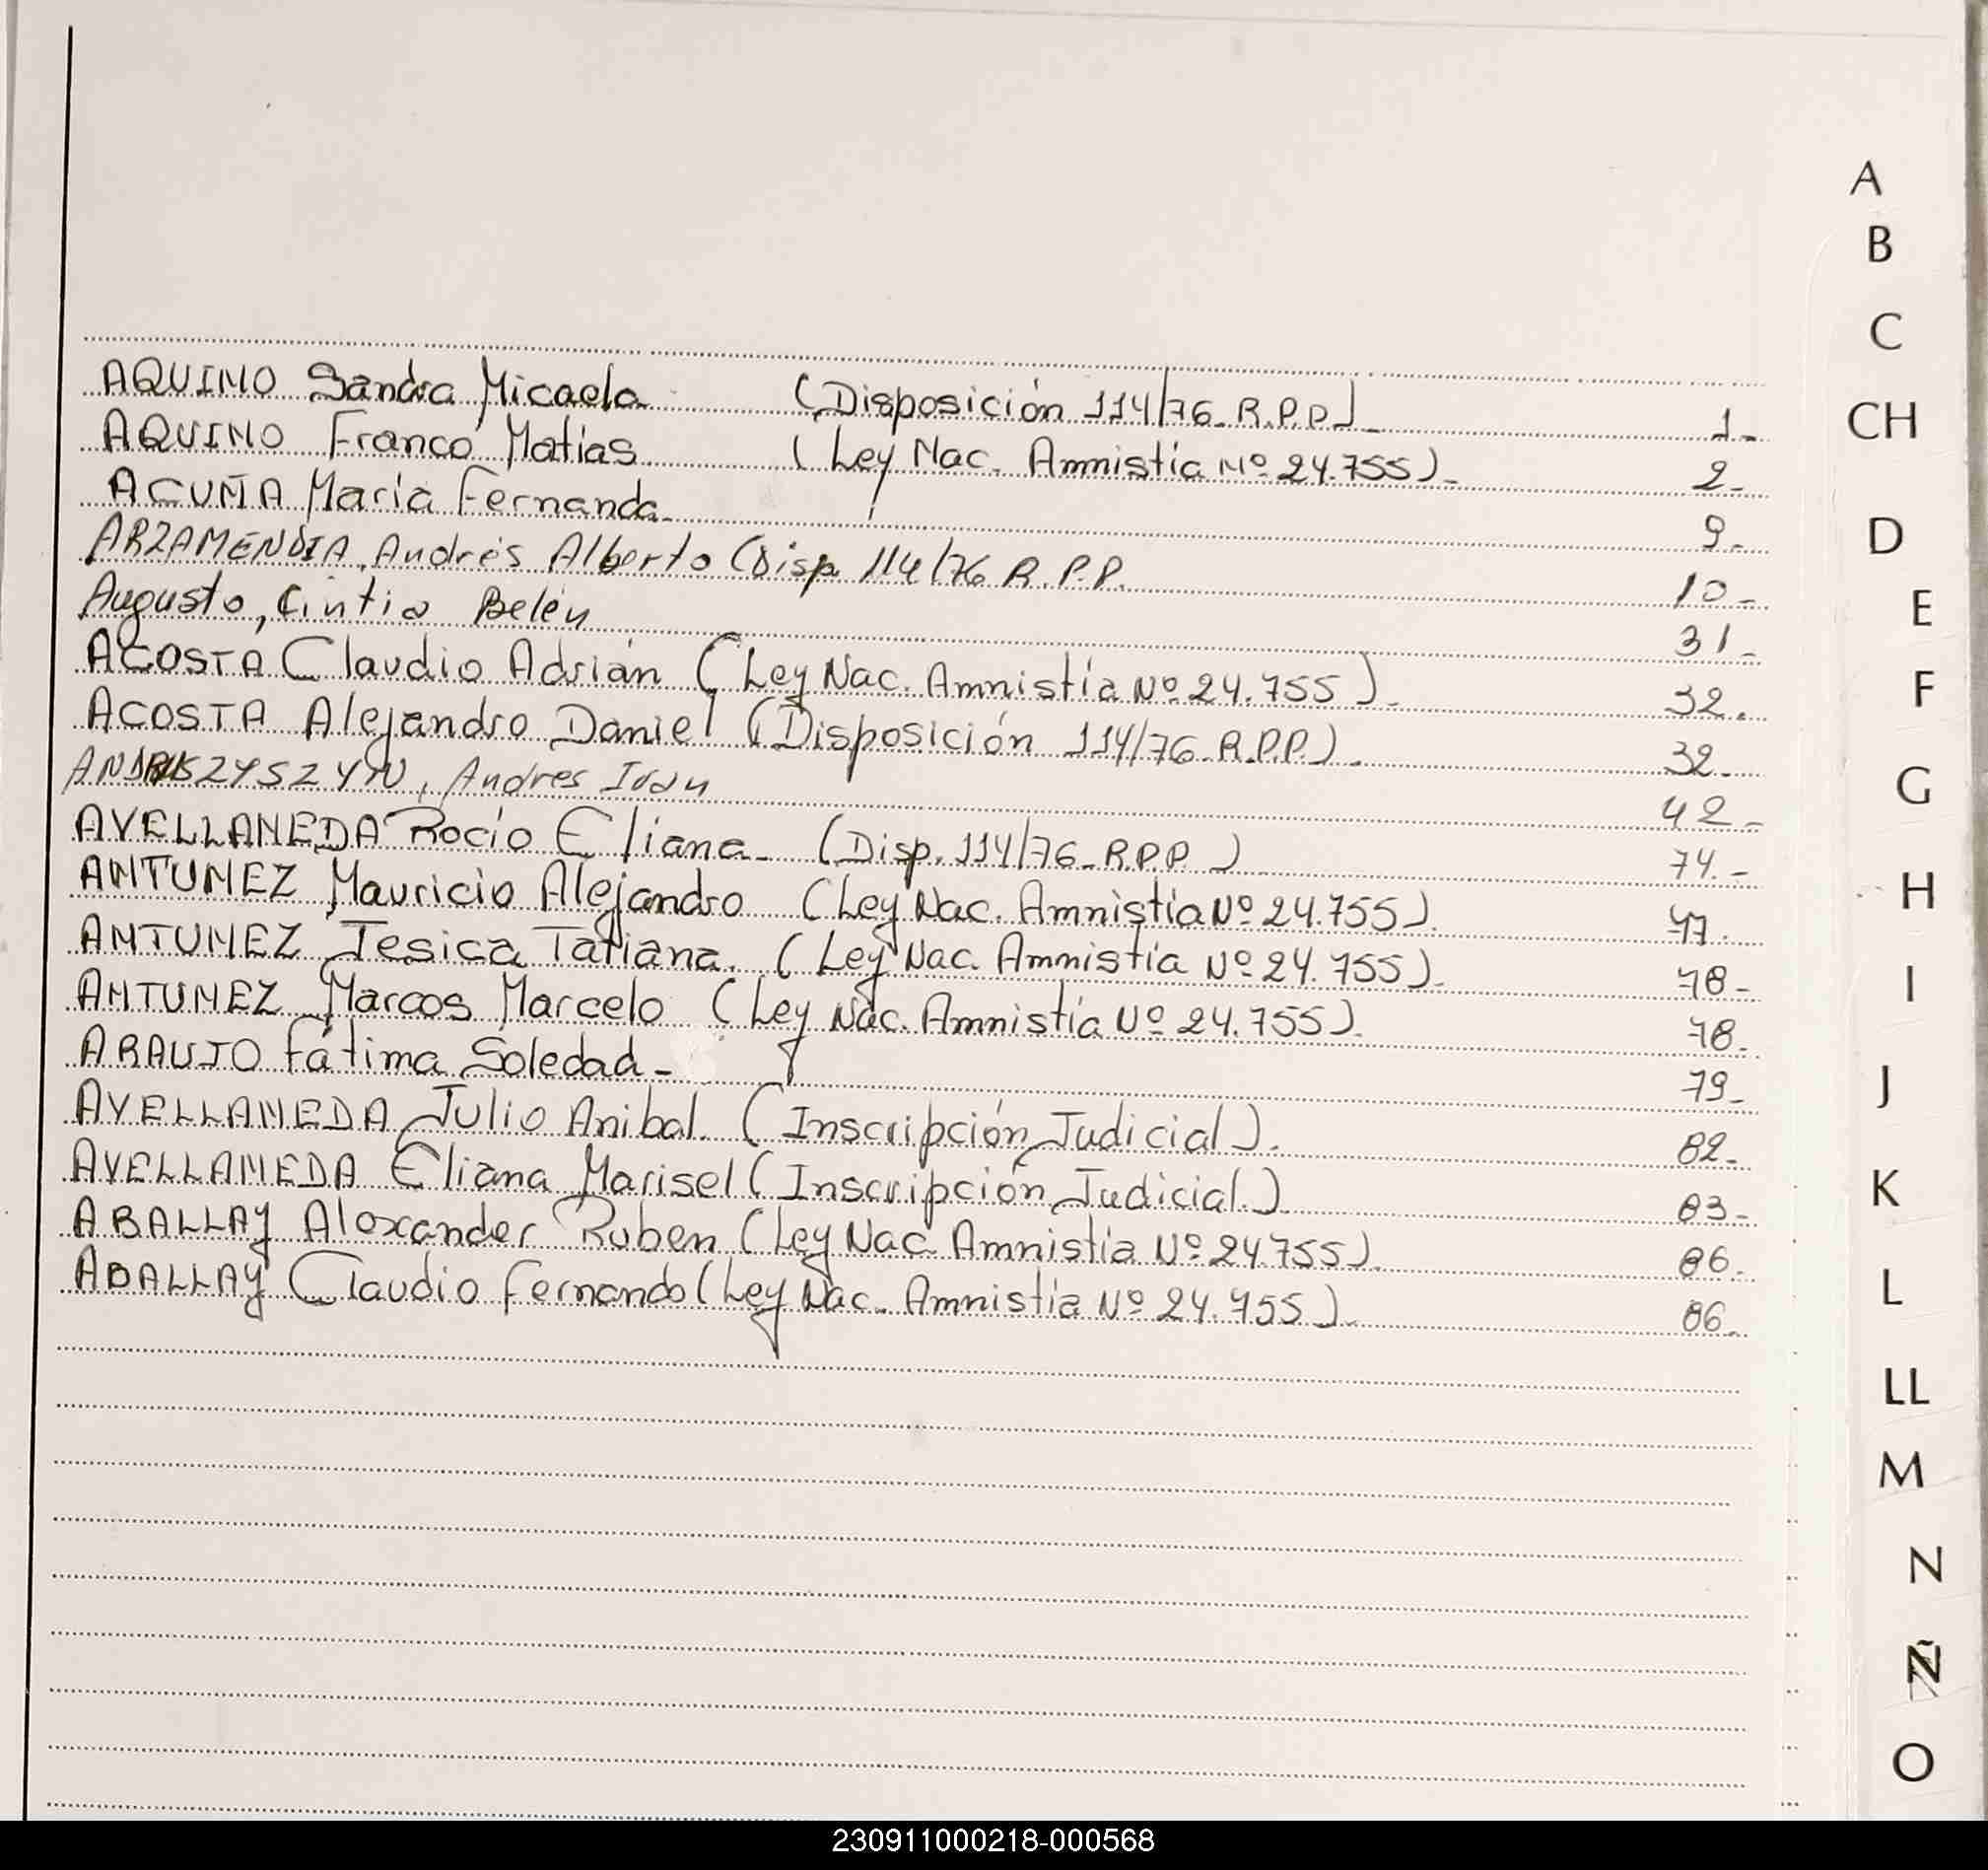 AQUINO Sandra Micaela (Disposición 114/76 R.P.P) 1-
AQUINO Franco Matias (Ley Nac. Amnistia Nº 24.755)- 2-
ACUÑA Maria Fernanda- 9-
ARZAMENDIA, Andrés Alberto (Disp 114/76 R.P.P. 10-
Augusto, Cintia Belén 31-
ACOSTA Claudio Adrián (Ley Nac. Amnistía Nº 24.755)- 32.
ACOSTA Alejandro Daniel (Disposición 114/76 R.P.P.)- 32-
Andres Ivan 42-
AVELLANEDA Rocio Eliana- (Disp. 114/76- R.P.P) 74.-
ANTUNEZ Mauricio Alejandro (Ley Nac. Amnistia Nº 24.755).
ANTUNEZ Jesica Tatiana. (Ley Nac. Amnistia Nº 24.755)- 78-
ANTUNEZ Marcos Marcelo (Ley Nac. Amnistía Nº 24.755). 78-
ARAUJO Fátima Soledad- 79-
AVELLANEDA Julio Anibal. (Inscripción Judicial). 82-
AVELLANEDA Eliana Marisel (Inscripción Judicial.) 83-
ABALLAY Alexander Ruben (Ley Nac Amnistia Nº 24.755). 86-
ABALLAY Claudio Fernando (Ley Nac. Amnistía Nº 24.755)- 86-
A
B
C
CH
D
E
F
G
H
I
J
K
L
LL
M
N
Ñ
O
230911000218-000568